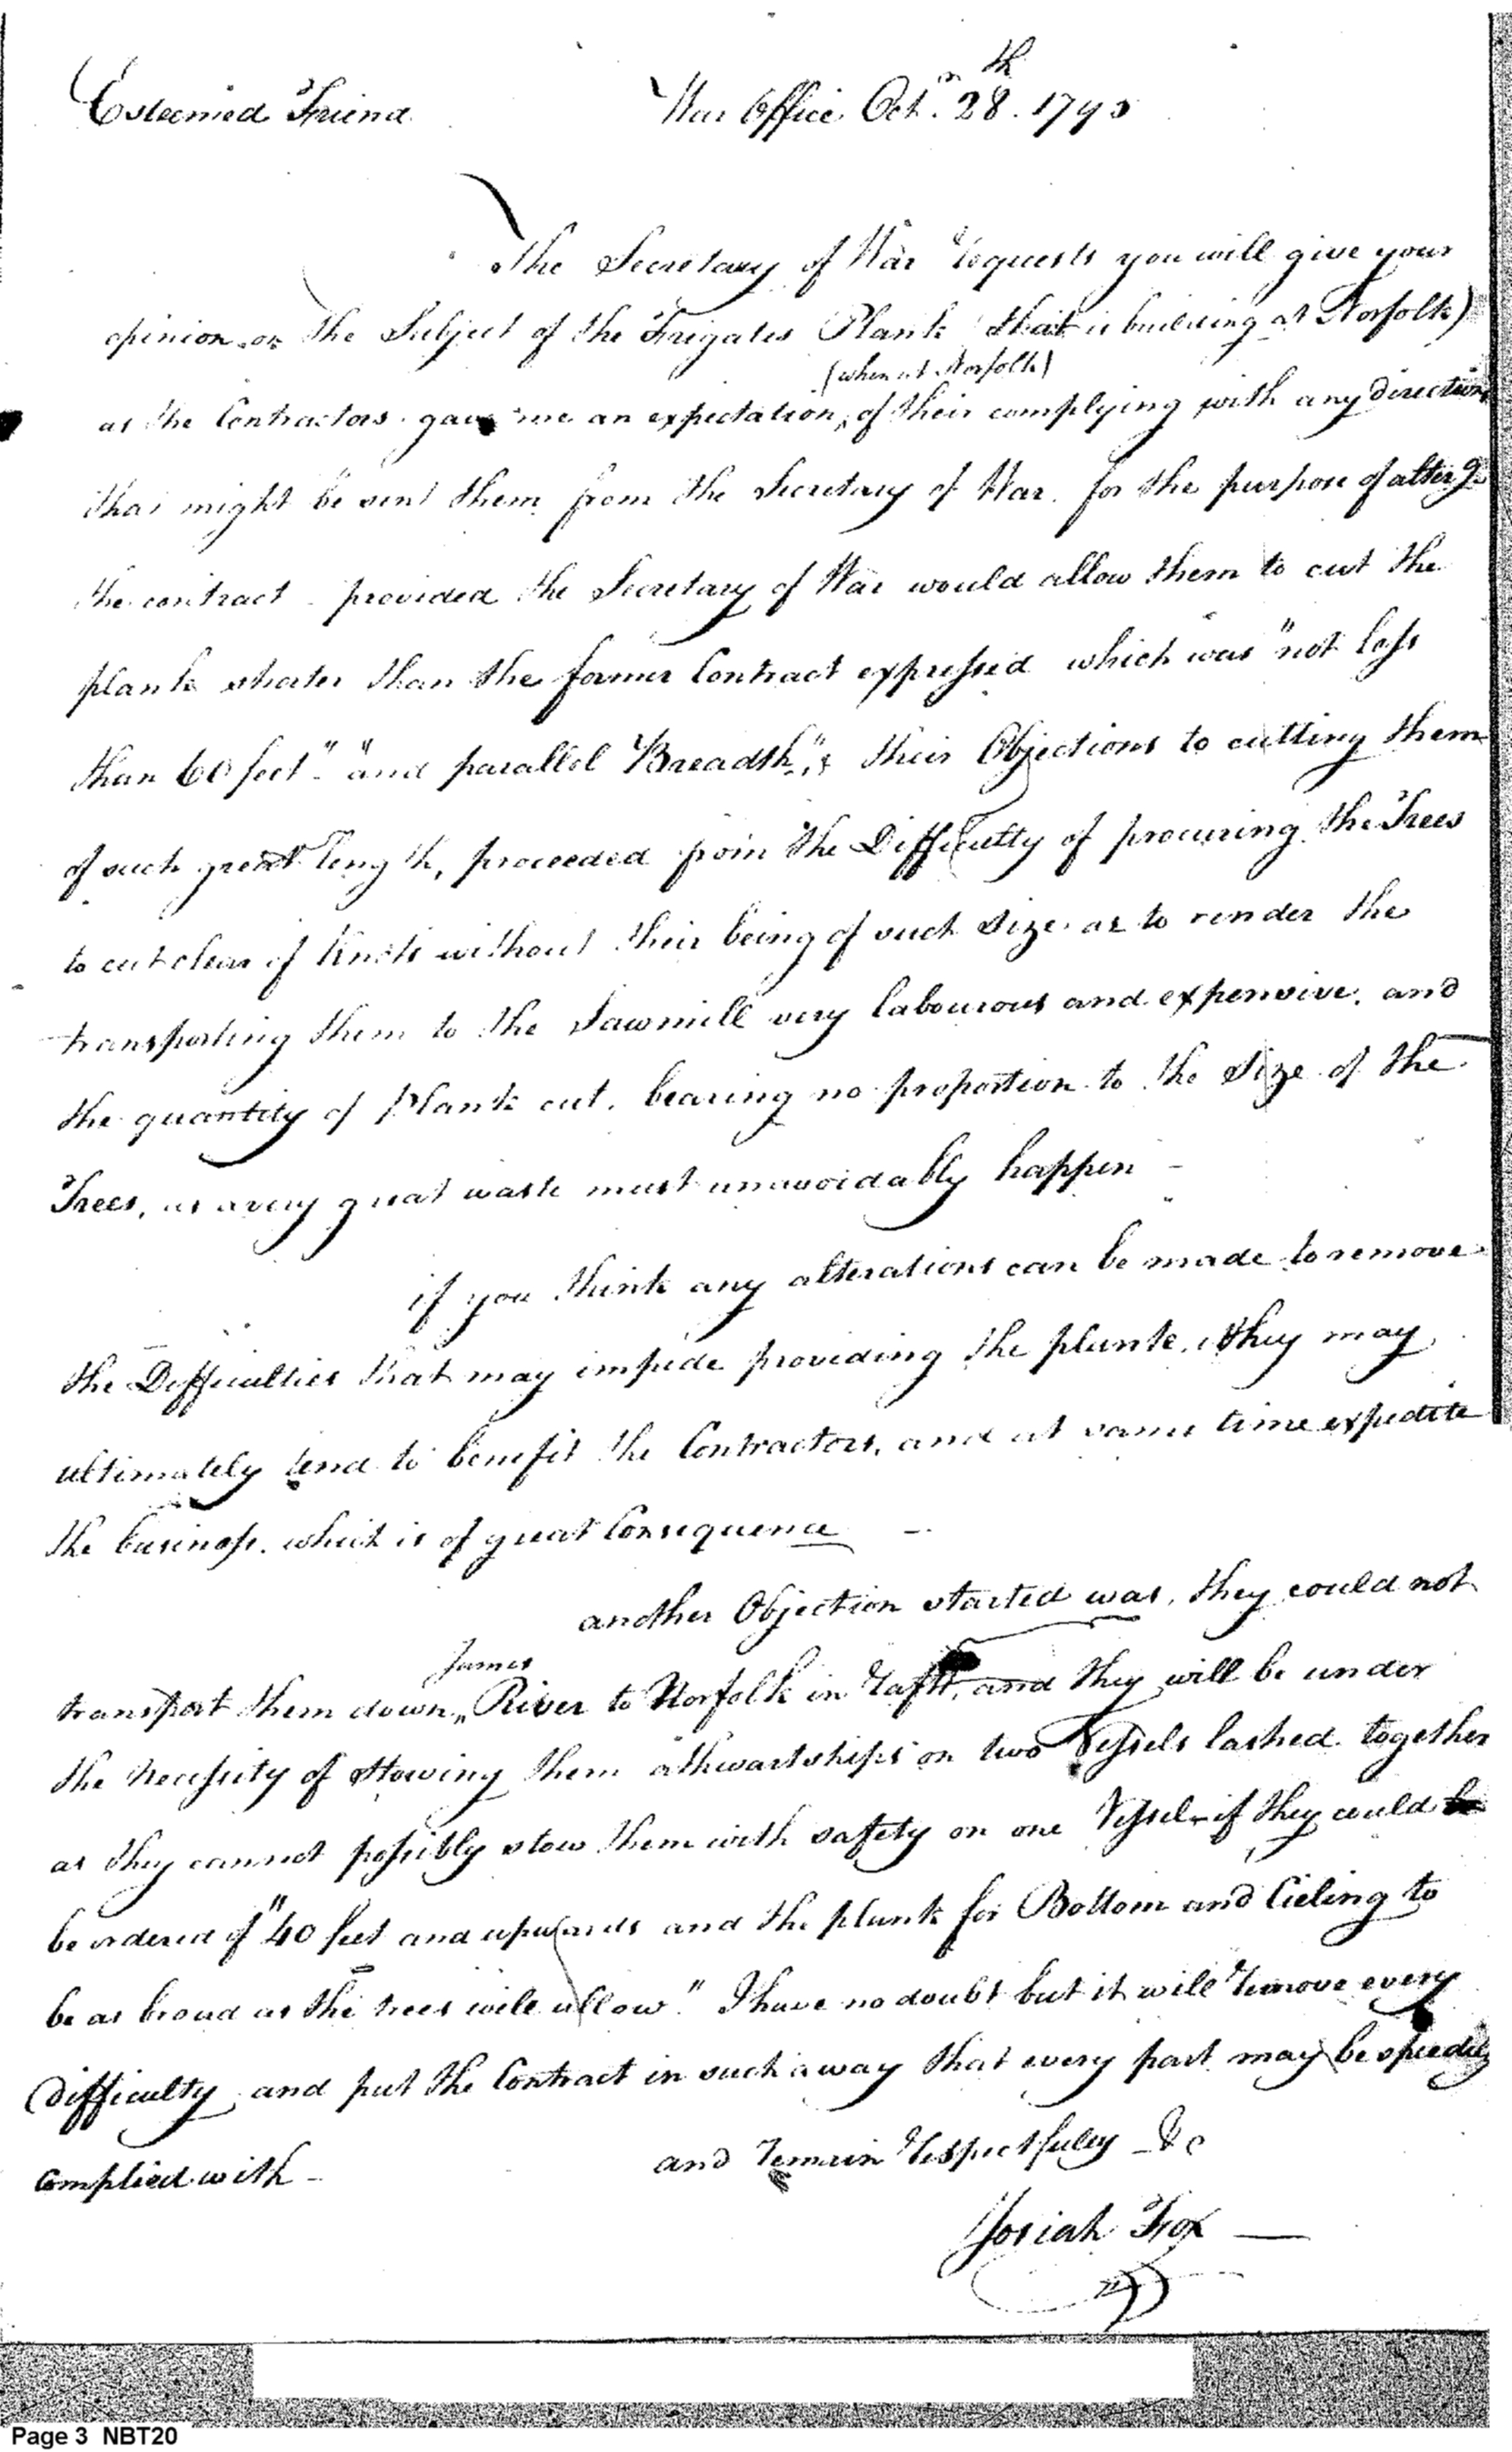 Esteemed Friend War Office Oct.r 28th. 1795
The Secretary of War requests you will give your
opinion on the Subject of the Frigates Plank (that is building at Norfolk)
(when at Norfolk)
as the Contractors gave me an expectation, of their complying with any directions
that might be sent them from the Secretary of War. for the purpose of alterg
the contract - provided the Secretary of War would allow them to cut the
plank shorter than the former Contract expressed which was "not less
than 60 feet" "and parallel Breadth", & their Objections to cutting them
of such great length, proceeded from the Difficulty of procuring the Trees
to cut clear of Knots without their being of such size as to render the
transporting them to the Sawmill very labourous and expensive. and
the quantity of Plank cut. bearing no proportion to the Size of the
Trees, as a very great waste must unavoidably happen -
if you think any alterations can be made to remove
the Difficulties that may impede providing the plank, they may
ultimately tend to benefit the Contractors, and at same time expedite
the business. which is of great Consequence -
another Objection started was, they could not
James
transport them down River to Norfolk in rafts, and they will be under
the necessity of stowing them athwartships on two Vessels lashed together
as they cannot possibly stow them with safety on one Vessel - if they could be
be ordered of "40 feet and upwards and the plank for Bottom and Cieling to
be as broad as the trees will allow." I have no doubt but it will remove every
difficulty and put the Contract in such a way that every part may be speedily
Complied with - and remain respectfully - &c
Josiah Fox
Page 3 NBT20